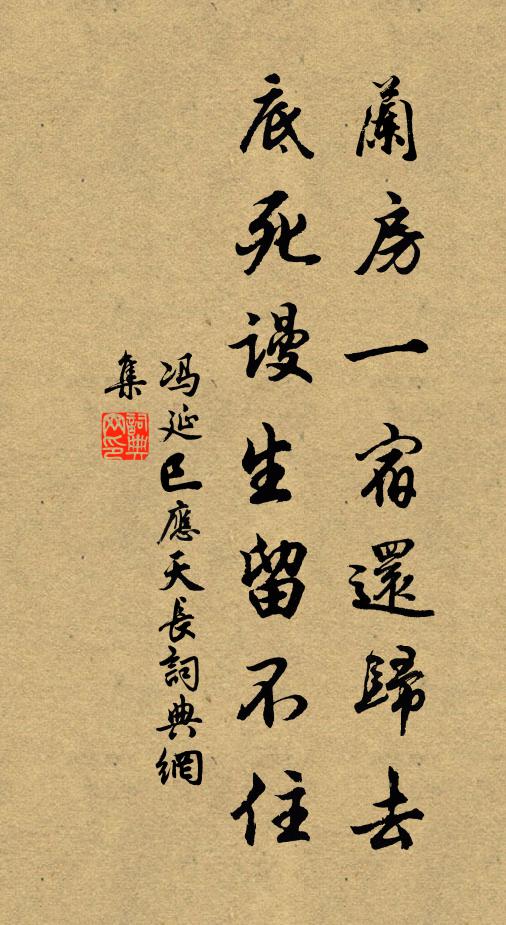 蘭房一宿還歸去
底死謾生留不住
冯延巳應天長詞典網
集
詞典
网印